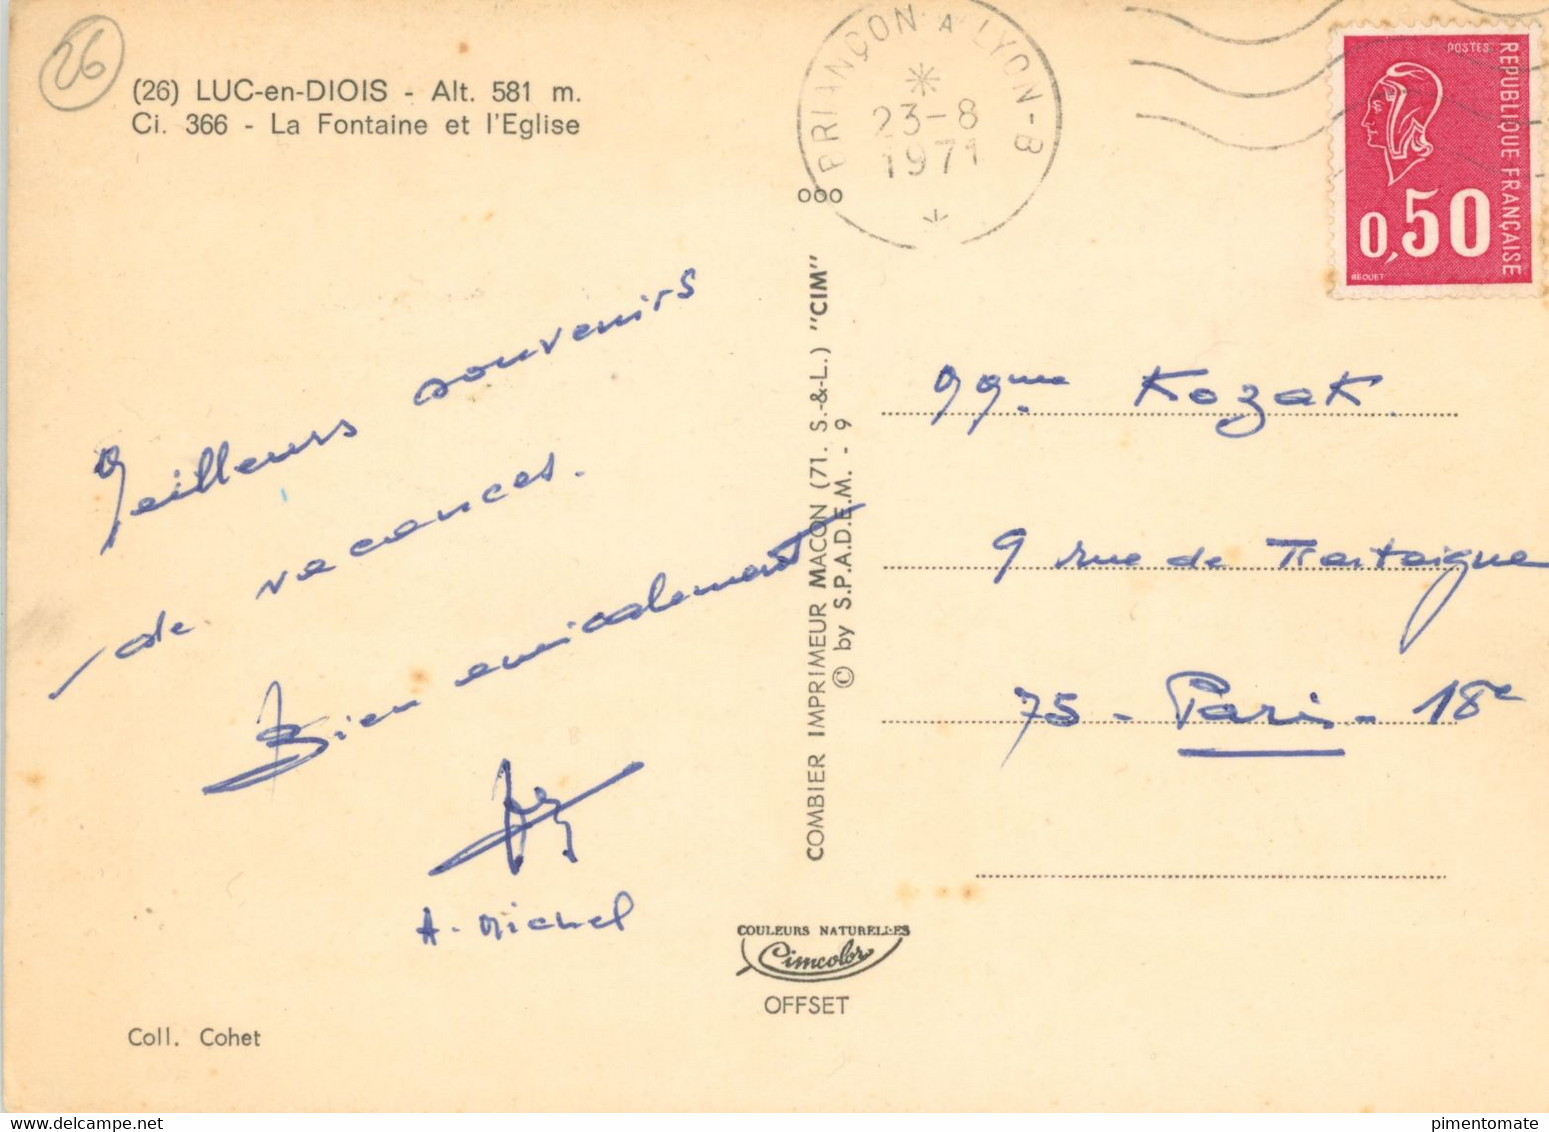 26
(26) LUC-en-DIOIS - Alt. 581 m.
Ci. 366 - La Fontaine et l'Eglise
BRIANÇON A LYON-B
23-8
1971
POSTES
REPUBLIQUE FRANÇAISE
0,50
BEQUET
ooo
Meilleurs souvenirs
de vacances.
Bien amicalement
A. Michel
COMBIER IMPRIMEUR MACON (71. S.-&-L.) "CIM"
© by S.P.A.D.E.M. - 9
Mme Kozak.
9 rue de Tretaigne
75 - Paris - 18e
COULEURS NATURELLES
Cimcolor
OFFSET
Coll. Cohet
pimentomate